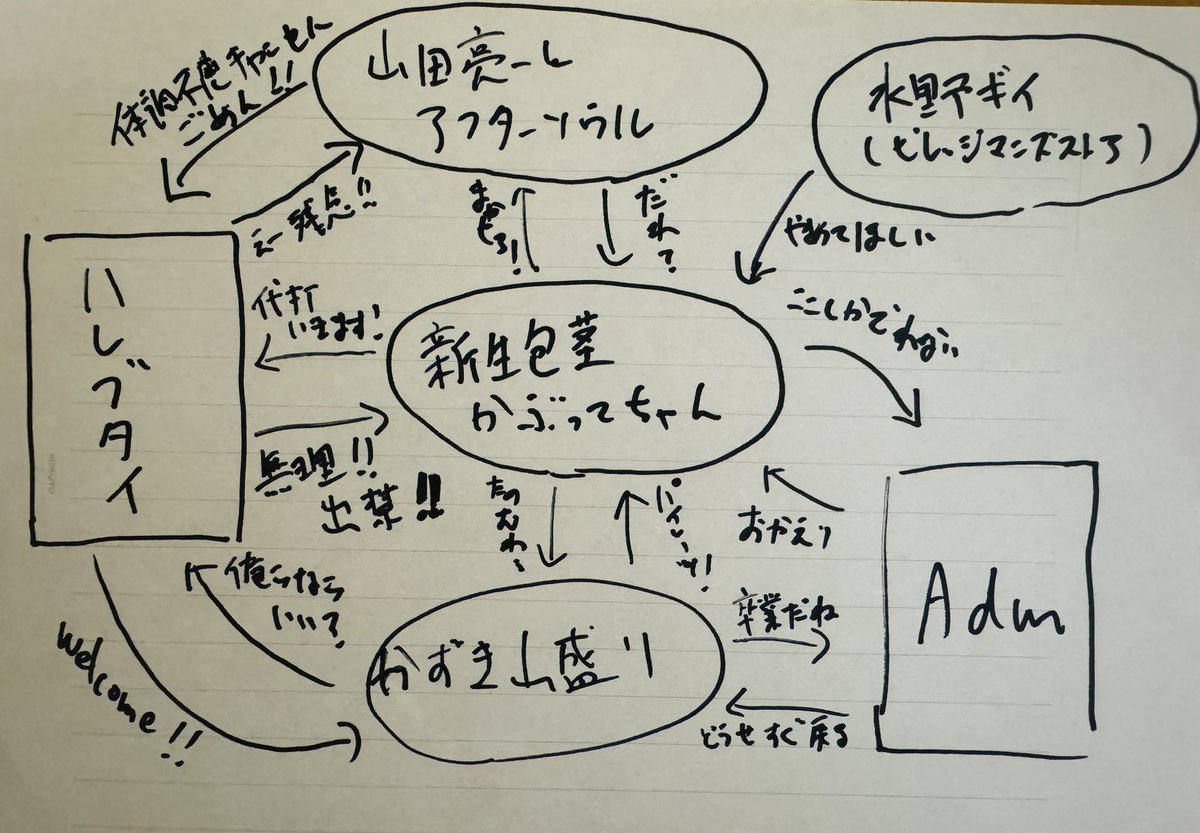 体調不良キャンセル
ごめん!!
山田亮一と
アフターソウル
水野ギイ
(ビレッジマンズストア)
えー残念!!
まかせろ!
だれ?
やめてほしい
ハレブタイ
代打
いきます!
新生包茎
かぶってちゃん
ここしかでれない
無理!!
出禁!!
たのむわ
パイセーン!
おかえり
俺らなら
いい?
Welcome!!
かずき山盛り
卒業だね
どうせすぐ戻る
Adm